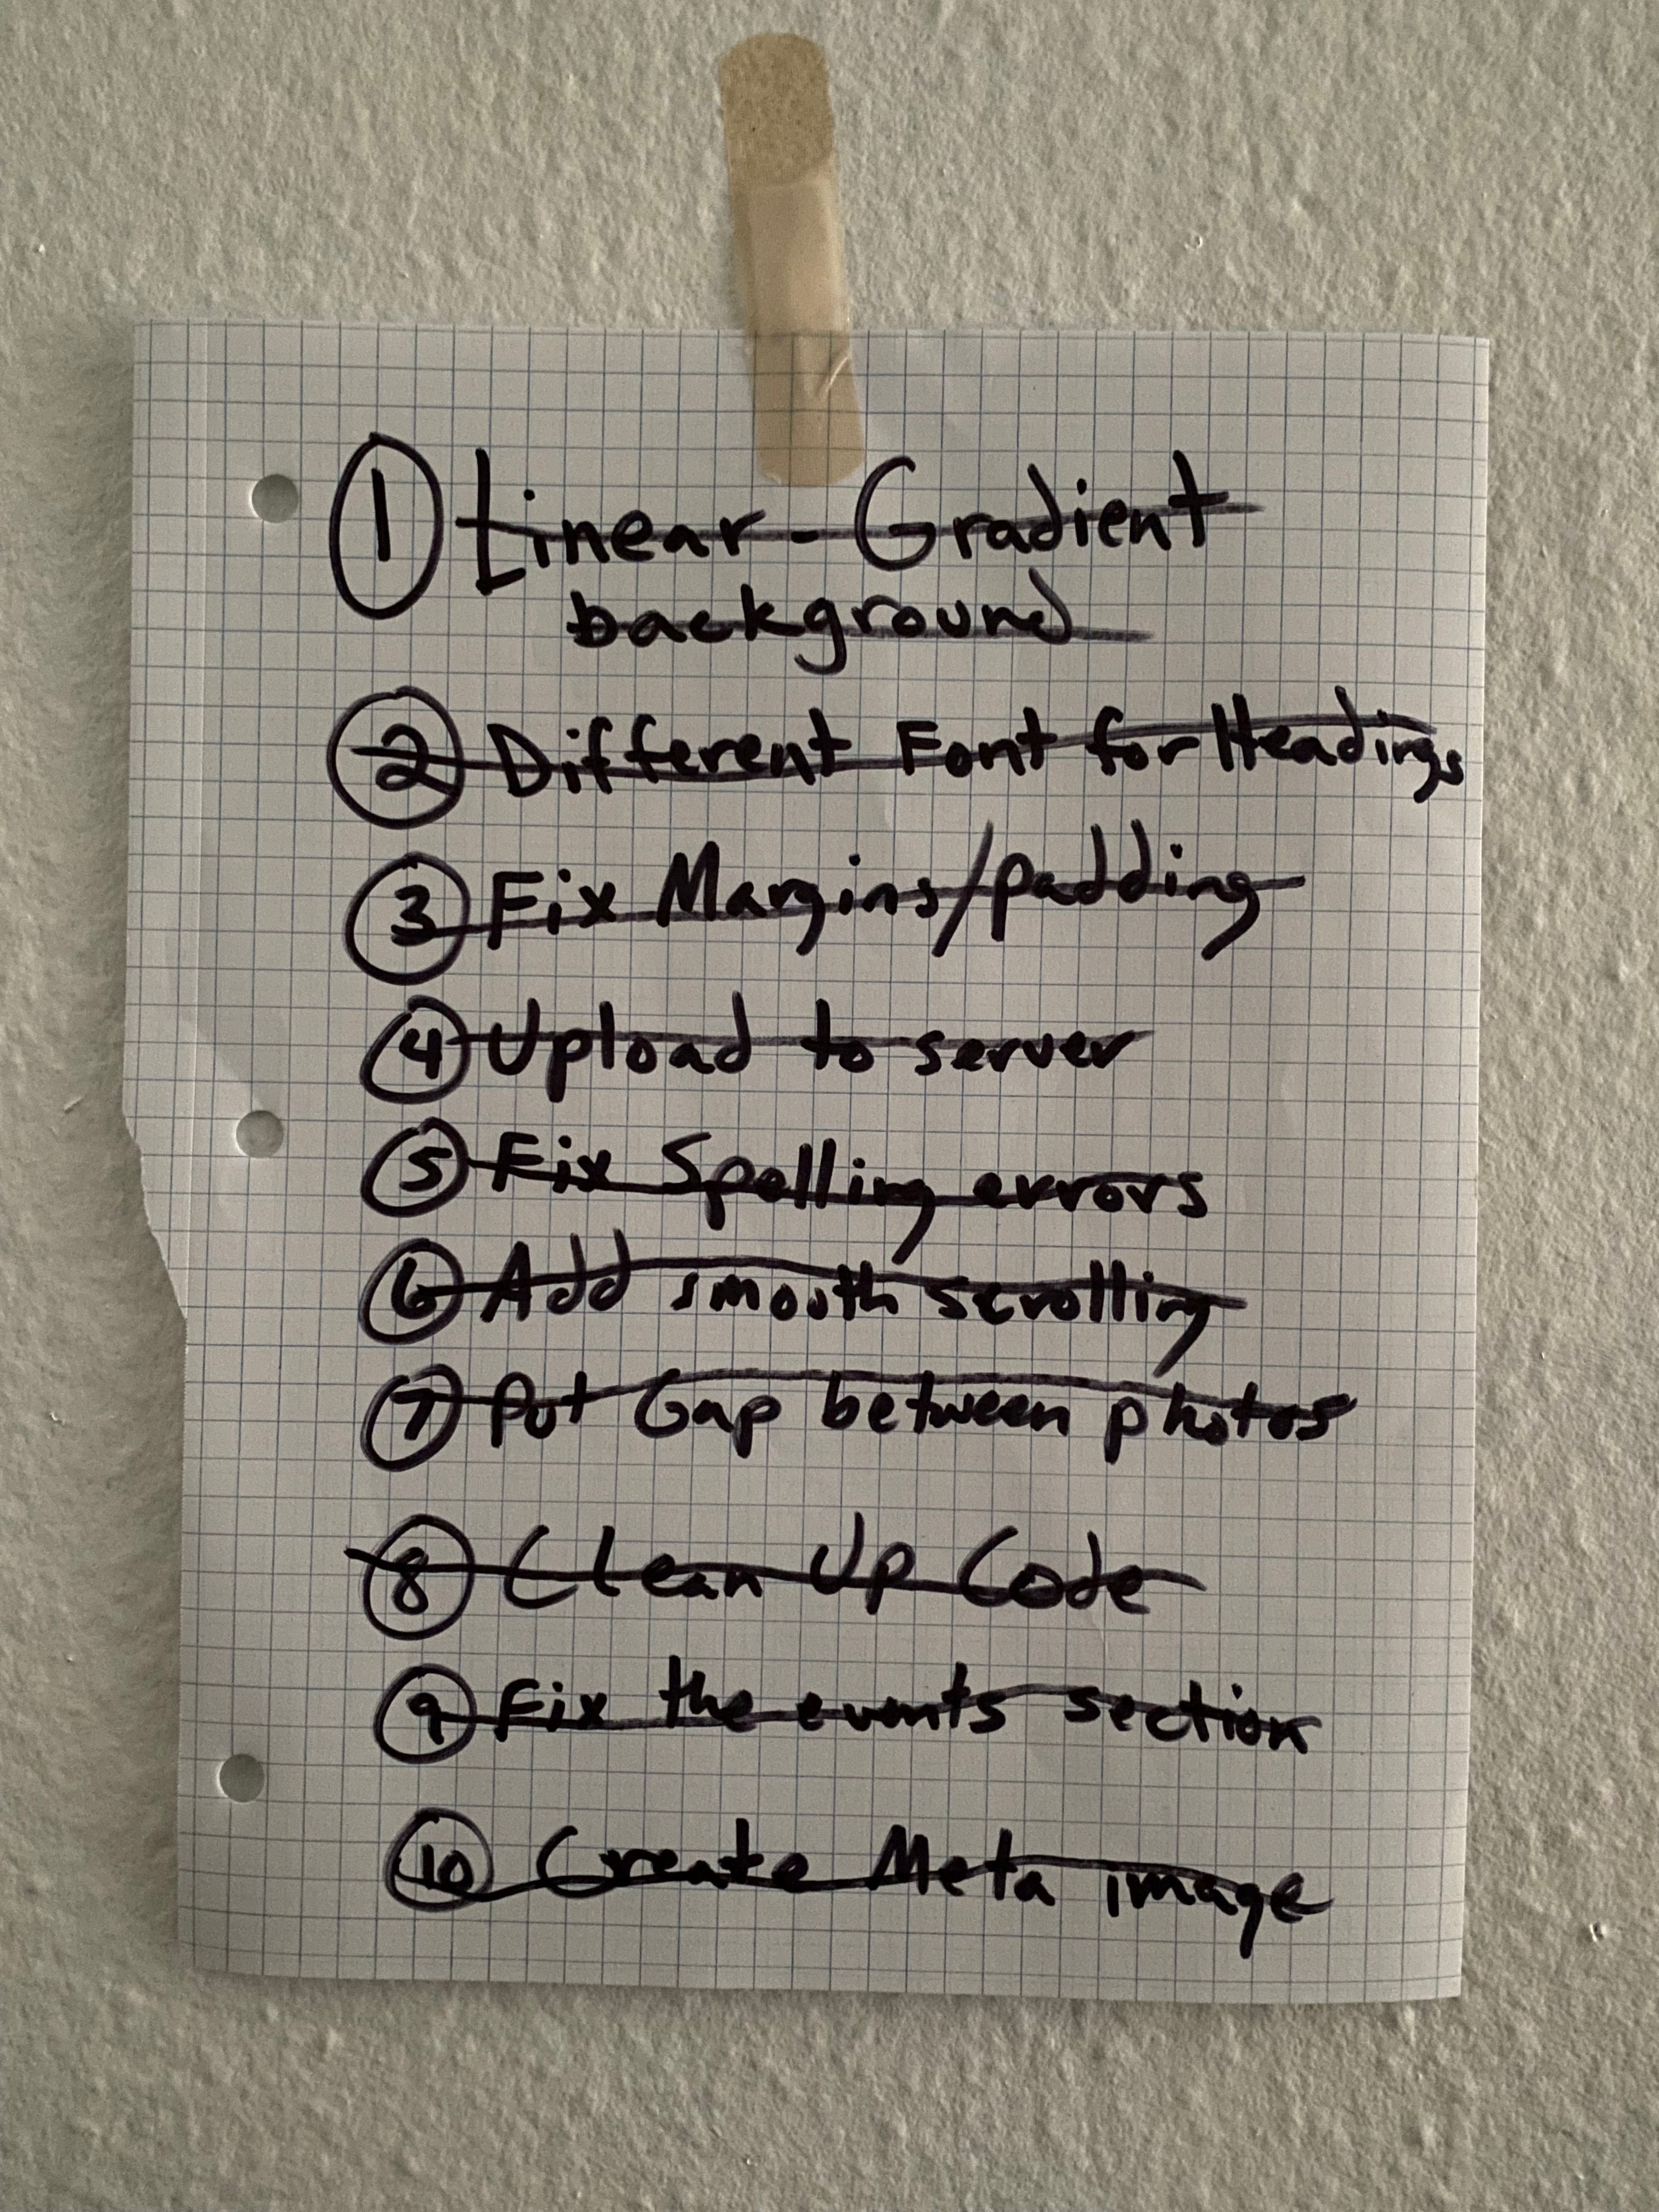 1 Linear-Gradient
background
2 Different Font for Headings
3 Fix Margins/padding
4 Upload to server
5 Fix Spelling errors
6 Add smooth scrolling
7 Put Gap between photos
8 Clean Up Code
9 Fix the events section
10 Create Meta image